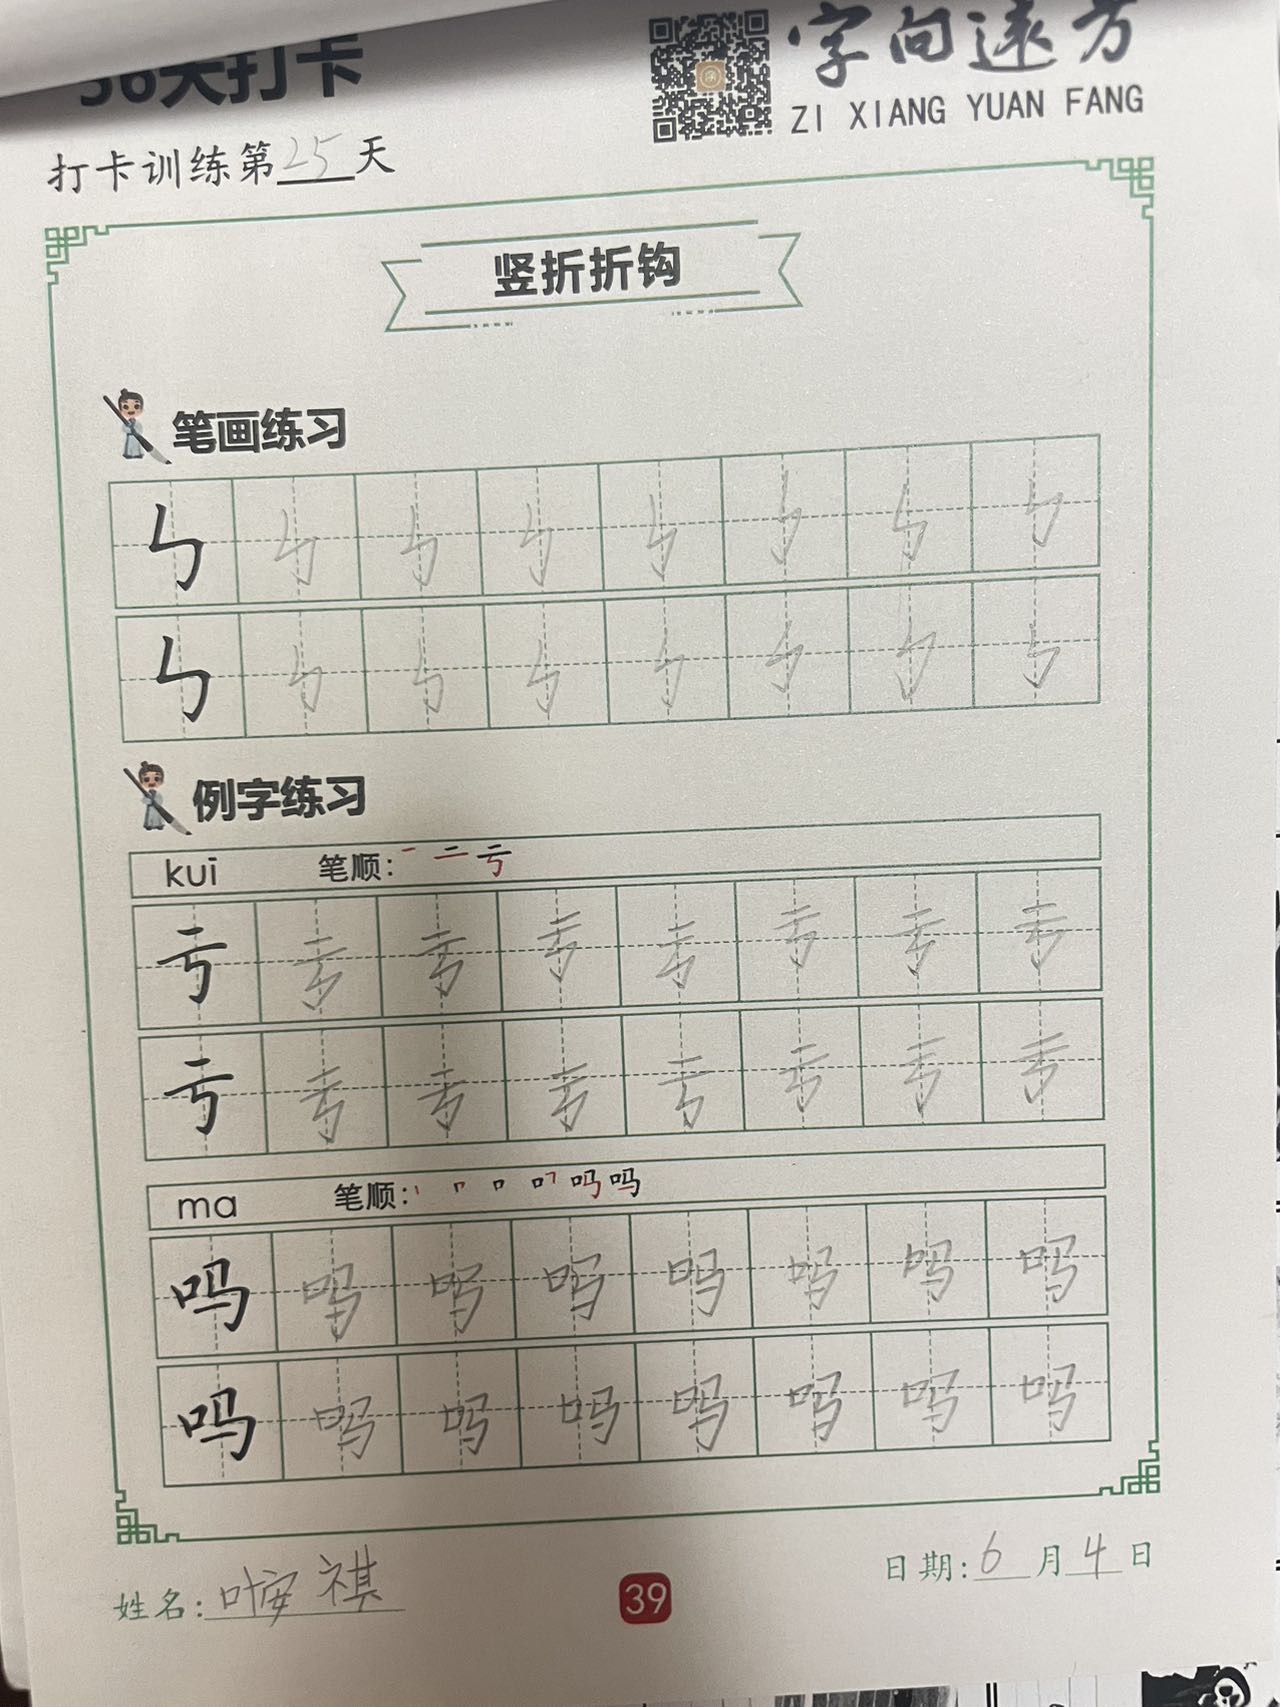 天打卡
字向远方
ZI XIANG YUAN FANG
打卡训练第25天
竖折折钩
笔画练习
㇉㇉㇉㇉㇉㇉㇉㇉
㇉㇉㇉㇉㇉㇉㇉㇉
例字练习
kuī 笔顺: 一 二 亏
亏亏亏亏亏亏亏亏
亏亏亏亏亏亏亏亏
ma 笔顺: 吗
吗吗吗吗吗吗吗吗
吗吗吗吗吗吗吗吗
姓名:叶安祺
39
日期:6月4日